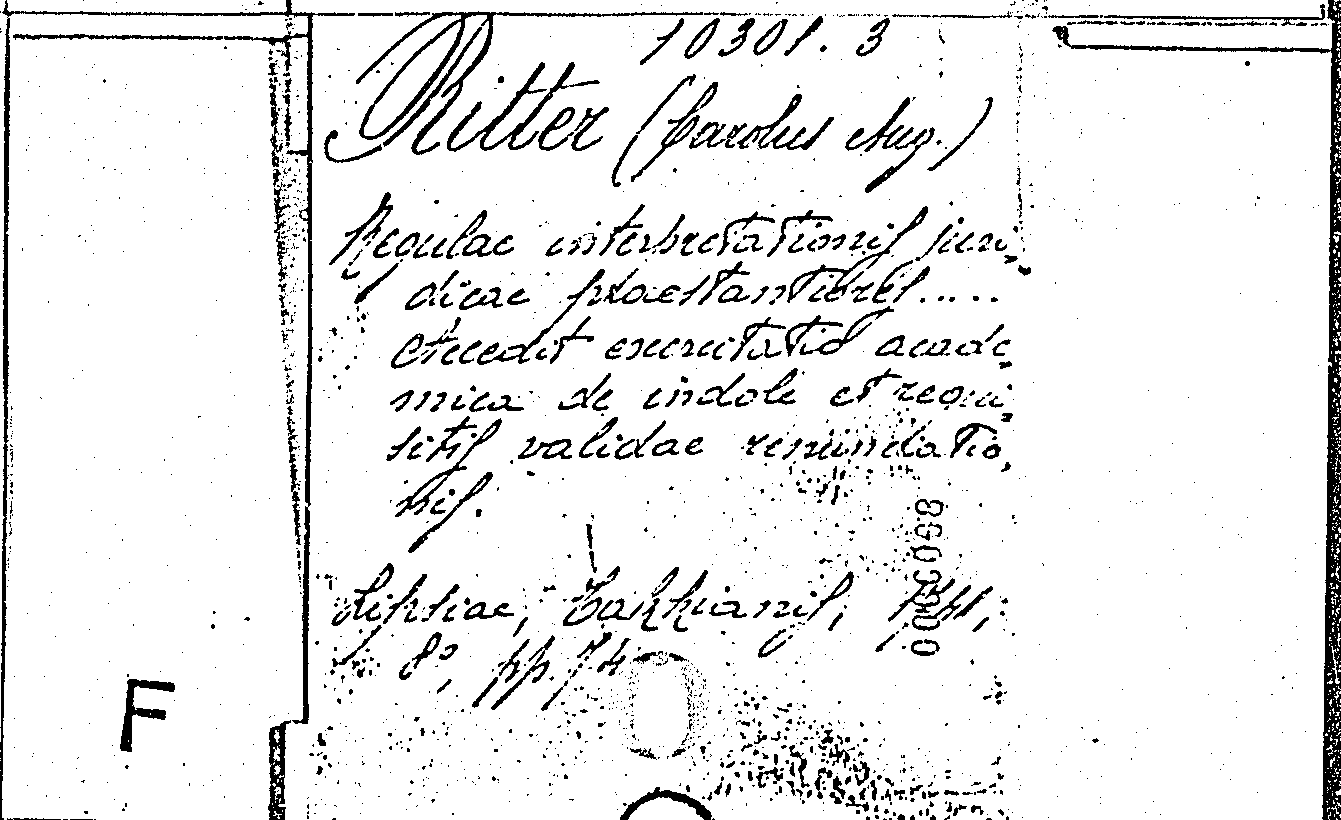 10301.3
Ritter (Carolus Aug.)
Regulae interpretationis juri-
dicae praestantiores.....
Accedit exercitatio acade-
mica de indole et requi-
sitis validae renundatio-
nis.
Lipsiae, 8°, pp. 74
F